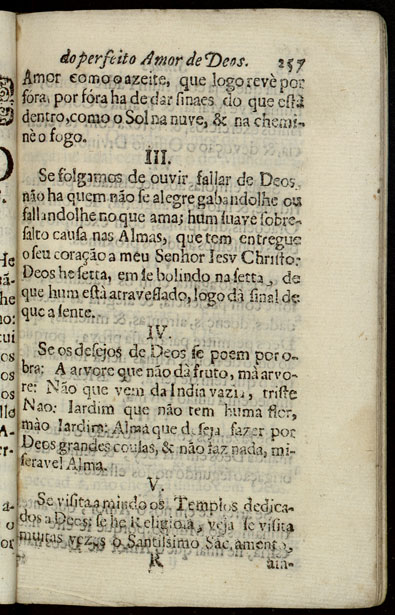 do perfeito Amor de Deos. 257
Amor como o azeite, que logo revè por
fóra, por fóra ha de dar sinaes do que está
dentro, como o Sol na nuve, & na chemi-
nè o fogo.
III.
Se folgamos de ouvir fallar de Deos,
não ha quem não se alegre gabandolhe ou
fallandolhe no que ama; hum suave sobre-
salto causa nas Almas, que tem entregue
o seu coração a meu Senhor Iesv Christo:
Deos he setta, em se bolindo na setta, de
que hum està atravessado, logo dà sinal de
que a sente.
IV
Se os desejos de Deos se poem por o-
bra; A arvore que não dà fruto, mà arvo-
re: Não que vem da India vazia, triste
Nao: Iardim que não tem huma flor,
mào Iardim: Alma que deseja fazer por
Deos grandes cousas, & não faz nada, mi-
seravel Alma.
V.
Se visita a mindo os Templos dedica-
dos a Deos; se he Religiosa, veja se visita
muitas vezes o Santissimo Sacramento,
R ain-